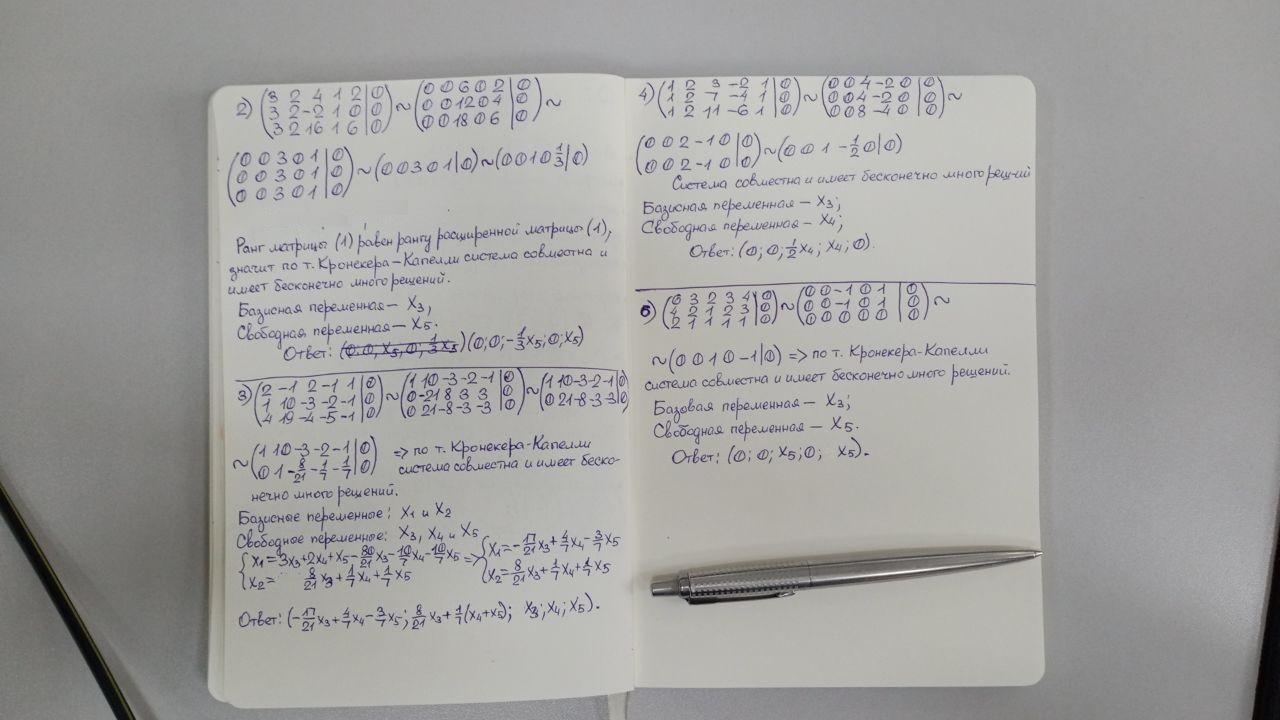 2) (3 2 4 1 2 | 0) ~ (0 0 6 0 2 | 0) ~
(3 2 -2 1 0 | 0) (0 0 12 0 4 | 0)
(3 2 16 1 6 | 0) (0 0 18 0 6 | 0)
(0 0 3 0 1 | 0) ~ (0 0 3 0 1 | 0) ~ (0 0 1 0 1/3 | 0)
(0 0 3 0 1 | 0)
(0 0 3 0 1 | 0)
Ранг матрицы (1) равен рангу расширенной матрицы (1),
значит по т. Кронекера-Капелли система совместна и
имеет бесконечно много решений.
Базисная переменная – x₃;
Свободная переменная – x₅.
Ответ: (0; 0; -1/3x₅; 0; x₅)
3) (2 -1 2 -1 1 | 0) ~ (1 10 -3 -2 -1 | 0) ~ (1 10 -3 -2 -1 | 0)
(1 10 -3 -2 -1 | 0) (0 -21 8 3 3 | 0) (0 21 -8 -3 -3 | 0)
(4 19 -4 -5 -1 | 0) (0 21 -8 -3 -3 | 0)
~ (1 10 -3 -2 -1 | 0) => по т. Кронекера-Капелли
(0 1 -8/21 -1/7 -1/7 | 0) система совместна и имеет беско-
нечно много решений.
Базисные переменные: x₁ и x₂
Свободные переменные: x₃, x₄ и x₅
{x₁ = 3x₃+2x₄+x₅-80/21x₃-10/7x₄-10/7x₅ => {x₁ = -17/21x₃+4/7x₄-3/7x₅
{x₂ = 8/21x₃+1/7x₄+1/7x₅ {x₂ = 8/21x₃+1/7x₄+1/7x₅
Ответ: (-17/21x₃+4/7x₄-3/7x₅; 8/21x₃+1/7(x₄+x₅); x₃; x₄; x₅).
4) (1 2 3 -2 1 | 0) ~ (0 0 4 -2 0 | 0) ~
(1 2 7 -4 1 | 0) (0 0 4 -2 0 | 0)
(1 2 11 -6 1 | 0) (0 0 8 -4 0 | 0)
(0 0 2 -1 0 | 0) ~ (0 0 1 -1/2 0 | 0)
(0 0 2 -1 0 | 0)
Система совместна и имеет бесконечно много реш-ий
Базисная переменная – x₃;
Свободная переменная – x₄;
Ответ: (0; 0; 1/2x₄; x₄; 0).
5) (6 3 2 3 4 | 0) ~ (0 0 -1 0 1 | 0) ~
(4 2 1 2 3 | 0) (0 0 -1 0 1 | 0)
(2 1 1 1 1 | 0) (0 0 0 0 0 | 0)
~ (0 0 1 0 -1 | 0) => по т. Кронекера-Капелли
система совместна и имеет бесконечно много решений.
Базовая переменная – x₃;
Свободная переменная – x₅.
Ответ: (0; 0; x₅; 0; x₅).